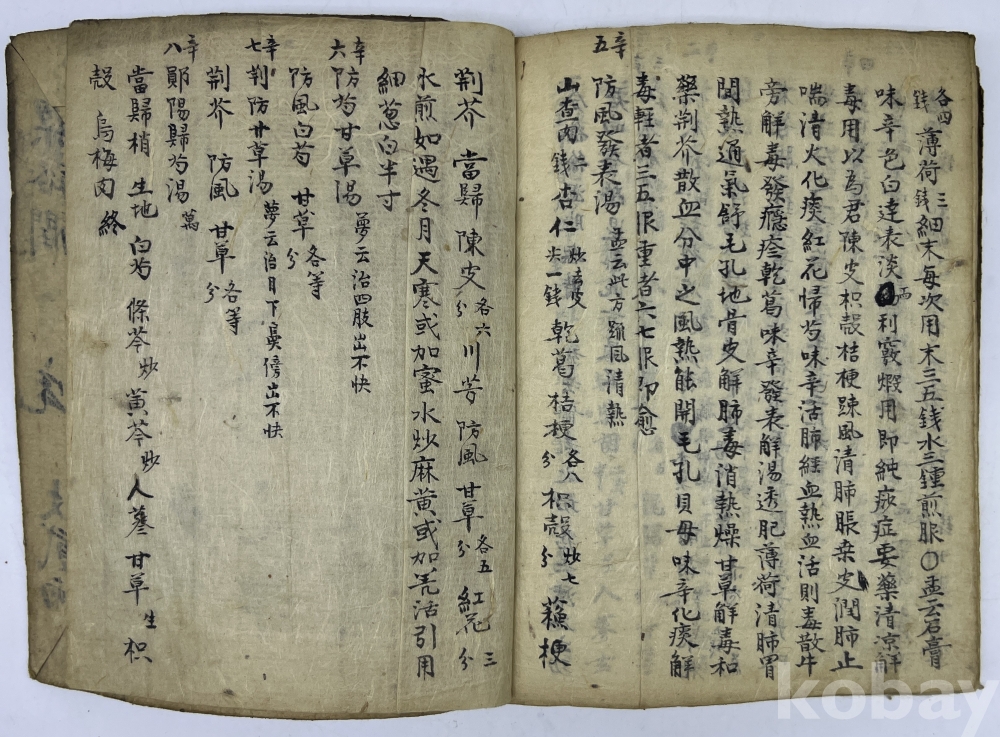 各四
錢 薄荷三錢 細末每次用末三五錢水三鍾煎服〇孟云石膏
味辛色白達表淡雨利竅煆用即純痧症要藥清凉解
毒用以為君陳皮枳殼桔梗踈風清肺脹桒皮潤肺止
喘清火化痰紅花帰芍味辛活肺經血熱血活則毒散牛
旁解毒發癮疹乾葛味辛發表解湯透肥薄荷清肺胃
間熱通氣舒毛孔地骨皮解肺毒消熱燥甘草解毒和
藥荆芥散血分中之風熱能開毛孔貝母味辛化痰解
毒輕者三五服重者六七服即愈
辛五
防風發表湯 孟云此方踈風清熱
山查肉二錢 杏仁炒去皮尖一錢 乾葛桔梗各八分 枳殼炒七分 蘓梗
荆芥 當歸 陳皮各六分 川芎 防風 甘草各五分 紅花三分
水煎如遇冬月天寒或加蜜水炒麻黄或加羌活引用
細葱白半寸
辛六
防芍甘草湯 夢云治四肢出不快
防風白芍 甘草各等分
辛七
荆防甘草湯 夢云治目下鼻傍出不快
荆芥 防風 甘草各等分
辛八
鄖陽歸芍湯 萬
當歸梢 生地 白芍 條芩炒 黄芩炒 人蔘 甘草生 枳
殼 烏梅肉 終
kobay